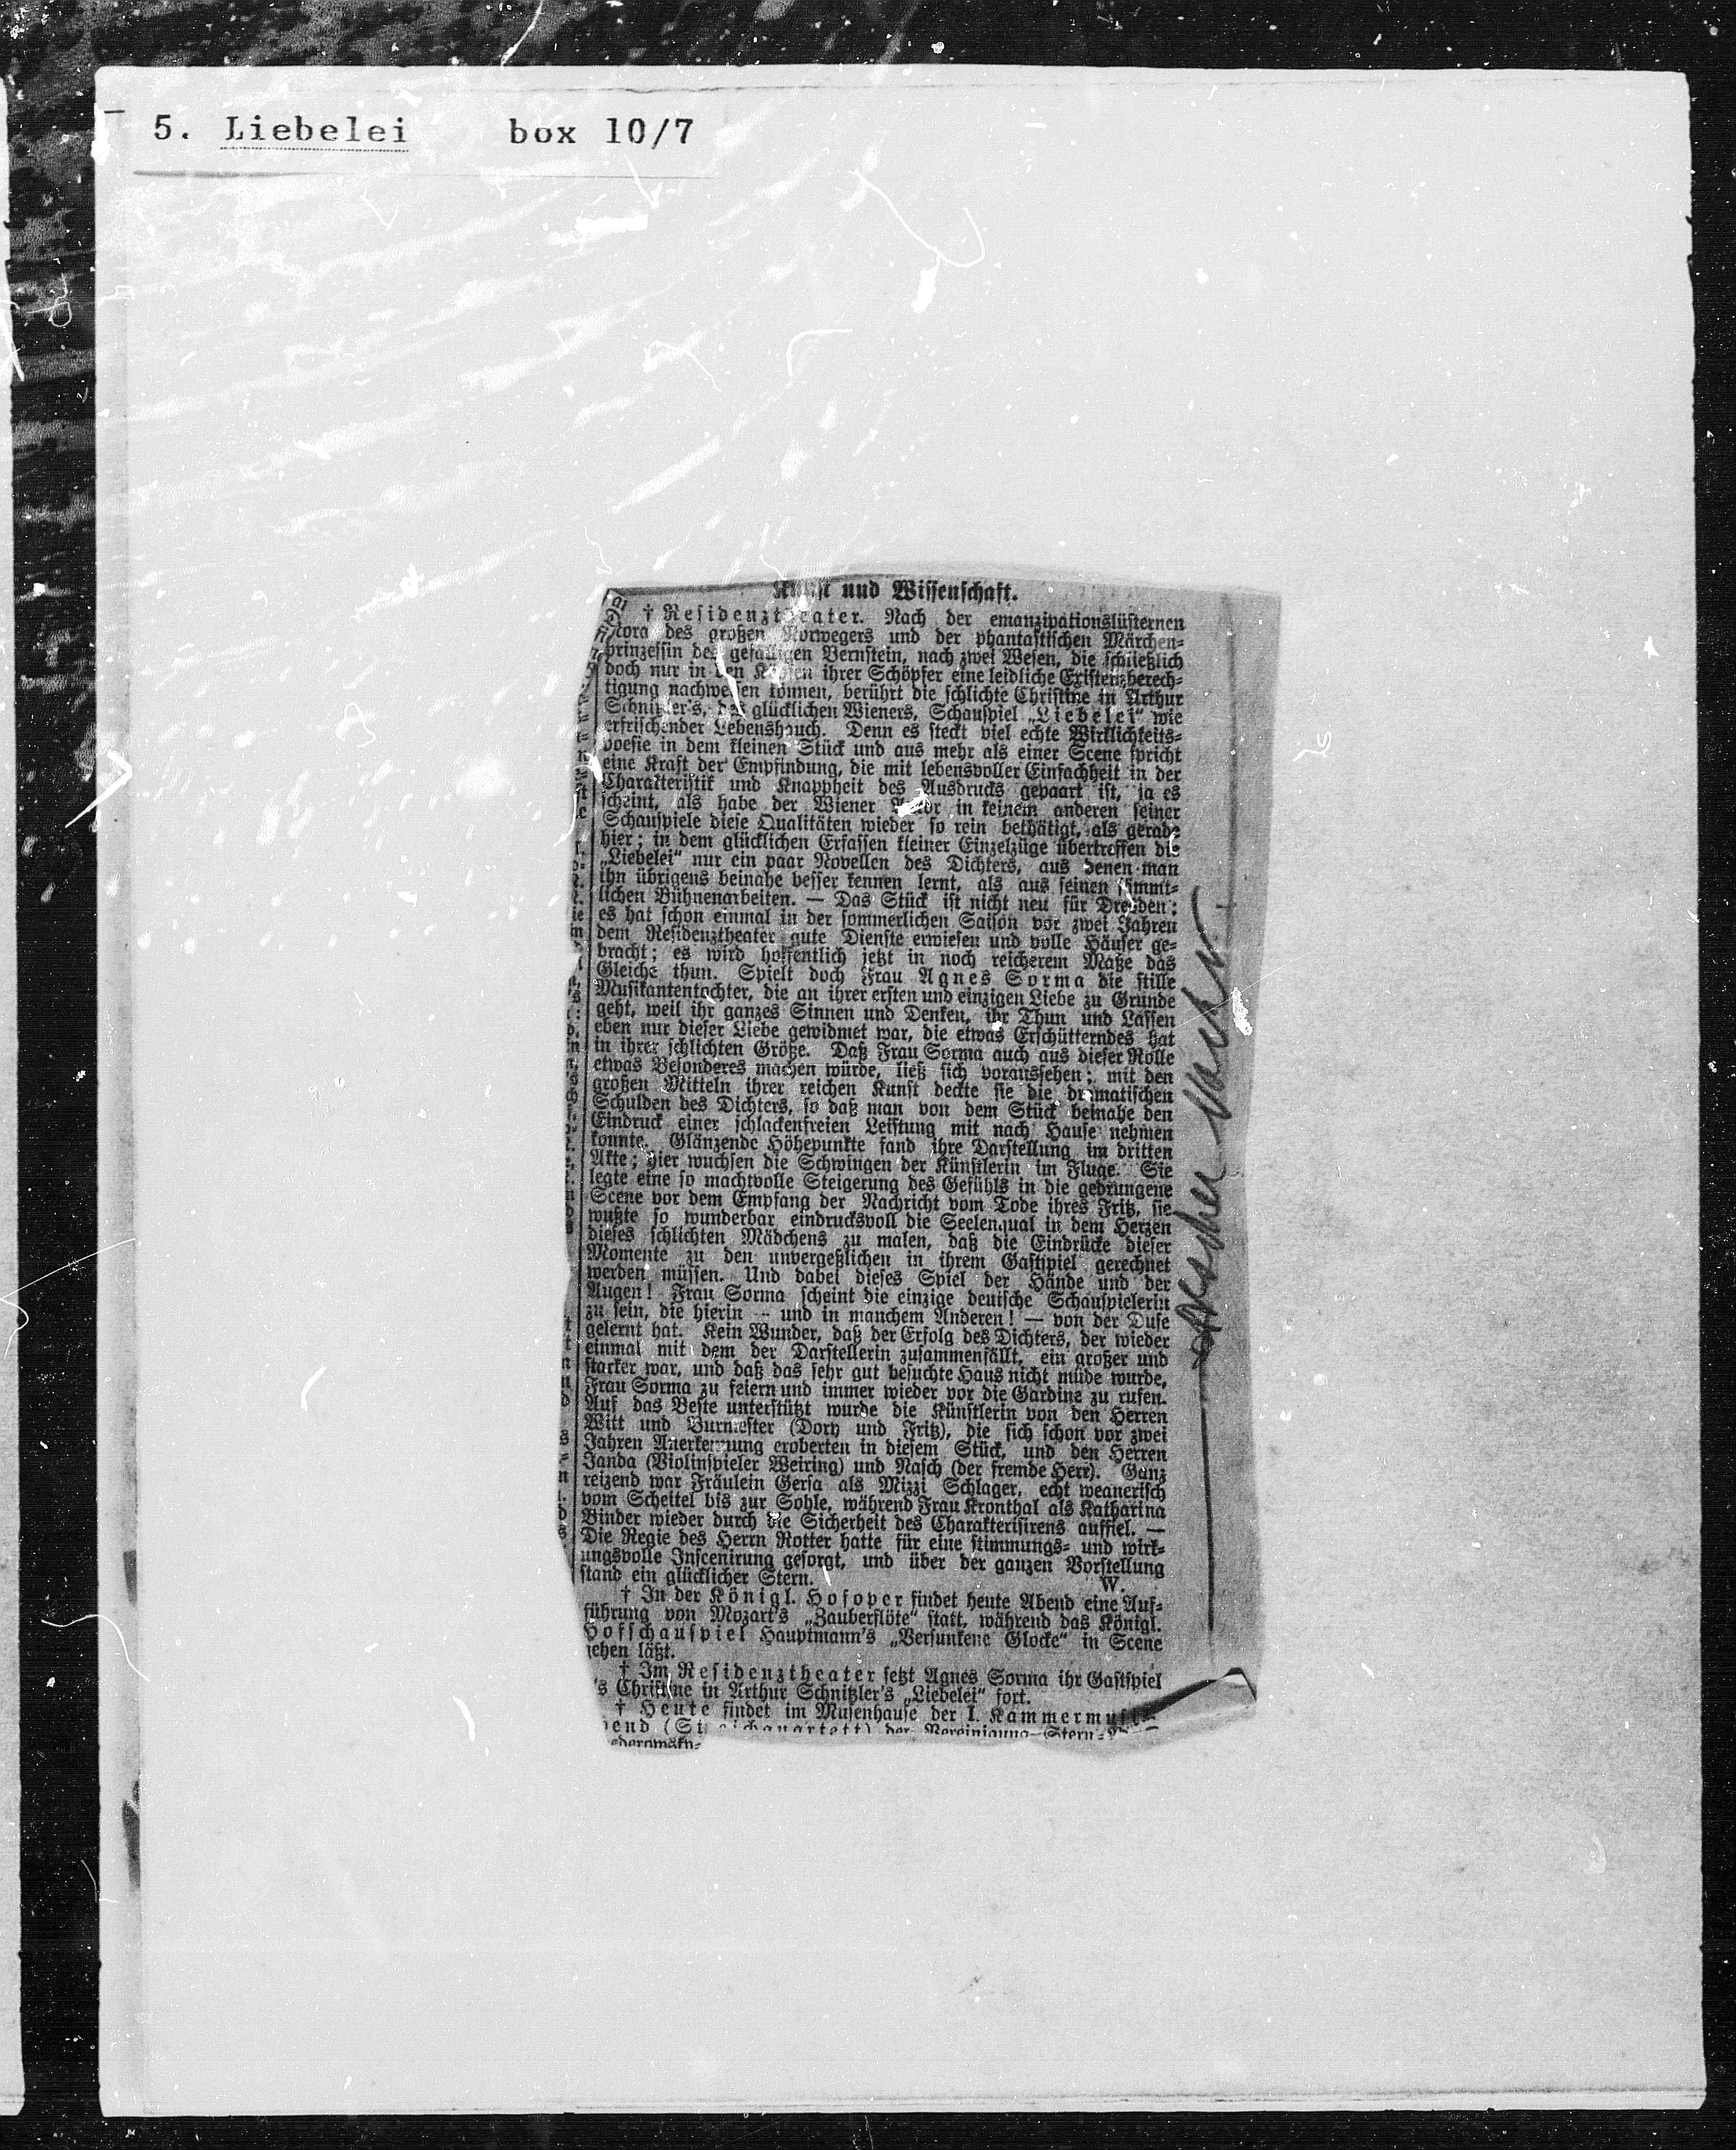 5. Liebelei box 10/7
Kunst und Wissenschaft.
† Residenztheater. Nach der emanzipationslüsternen
Nora des großen Norwegers und der phantastischen Märchen-
prinzessin des gefälligen Bernstein, nach zwei Wesen, die schließlich
doch nur in den Köpfen ihrer Schöpfer eine leidliche Existenzberech-
tigung nachweisen können, berührt die schlichte Christine in Arthur
Schnitzler's, des glücklichen Wieners, Schauspiel „Liebelei" wie
erfrischender Lebenshauch. Denn es steckt viel echte Wirklichkeits-
poesie in dem kleinen Stück und aus mehr als einer Scene spricht
eine Kraft der Empfindung, die mit lebensvoller Einfachheit in der
Charakteristik und Knappheit des Ausdrucks gepaart ist, ja es
scheint, als habe der Wiener Autor in keinem anderen seiner
Schauspiele diese Qualitäten wieder so rein bethätigt, als gerade
hier; in dem glücklichen Erfassen kleiner Einzelzüge übertreffen die
„Liebelei" nur ein paar Novellen des Dichters, aus denen man
ihn übrigens beinahe besser kennen lernt, als aus seinen sämmt-
lichen Bühnenarbeiten. — Das Stück ist nicht neu für Dresden;
es hat schon einmal in der sommerlichen Saison vor zwei Jahren
dem Residenztheater gute Dienste erwiesen und volle Häuser ge-
bracht; es wird hoffentlich jetzt in noch reicherem Maße das
Gleiche thun. Spielt doch Frau Agnes Sorma die stille
Musikantentochter, die an ihrer ersten und einzigen Liebe zu Grunde
geht, weil ihr ganzes Sinnen und Denken, ihr Thun und Lassen
eben nur dieser Liebe gewidmet war, die etwas Erschütterndes hat
in ihrer schlichten Größe. Daß Frau Sorma auch aus dieser Rolle
etwas Besonderes machen würde, ließ sich voraussehen; mit den
großen Mitteln ihrer reichen Kunst deckte sie die dramatischen
Schulden des Dichters, so daß man von dem Stück beinahe den
Eindruck einer schlackenfreien Leistung mit nach Hause nehmen
konnte. Glänzende Höhepunkte fand ihre Darstellung im dritten
Akte; hier wuchsen die Schwingen der Künstlerin im Fluge. Sie
legte eine so machtvolle Steigerung des Gefühls in die gedrungene
Scene vor dem Empfang der Nachricht vom Tode ihres Fritz, sie
wußte so wunderbar eindrucksvoll die Seelenqual in dem Herzen
dieses schlichten Mädchens zu malen, daß die Eindrücke dieser
Momente zu den unvergeßlichen in ihrem Gastspiel gerechnet
werden müssen. Und dabei dieses Spiel der Hände und der
Augen! Frau Sorma scheint die einzige deutsche Schauspielerin
zu sein, die hierin — und in manchem Anderen! — von der Duse
gelernt hat. Kein Wunder, daß der Erfolg des Dichters, der wieder
einmal mit dem der Darstellerin zusammenfällt, ein großer und
starker war, und daß das sehr gut besuchte Haus nicht müde wurde,
Frau Sorma zu feiern und immer wieder vor die Gardine zu rufen.
Auf das Beste unterstützt wurde die Künstlerin von den Herren
Witt und Burmester (Dory und Fritz), die sich schon vor zwei
Jahren Anerkennung eroberten in diesem Stück, und den Herren
Janda (Violinspieler Weiring) und Nasch (der fremde Herr). Ganz
reizend war Fräulein Gersa als Mizzi Schlager, echt weanerisch
vom Scheitel bis zur Sohle, während Frau Kronthal als Katharina
Binder wieder durch die Sicherheit des Charakterisirens auffiel. —
Die Regie des Herrn Rotter hatte für eine stimmungs- und wirk-
ungsvolle Inscenirung gesorgt, und über der ganzen Vorstellung
stand ein glücklicher Stern. W.
† In der Königl. Hofoper findet heute Abend eine Auf-
führung von Mozart's „Zauberflöte" statt, während das Königl.
Hofschauspiel Hauptmann's „Versunkene Glocke" in Scene
gehen läßt.
† Im Residenztheater setzt Agnes Sorma ihr Gastspiel
's Christine in Arthur Schnitzler's „Liebelei" fort.
† Heute findet im Musenhause der I. Kammermusik-
bend (Streichquartett) der Vereinigung Stern-